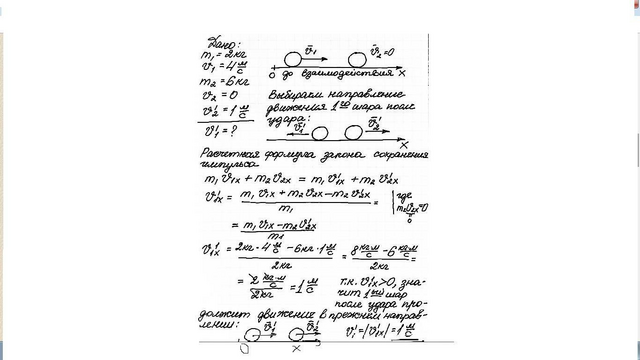 Дано:
m₁ = 2кг
v₁ = 4 м/с
m₂ = 6кг
v₂ = 0
v₂' = 1 м/с
v₁' = ?
v̄₁ v̄₂=0
0 до взаимодействия x
Выбираем направление
движения 1го шара после
удара:
v̄₁' v̄₂'
x
Расчетная формула закона сохранения
импульса
m₁v₁x + m₂v₂x = m₁v₁'x + m₂v₂'x
v₁'x = (m₁v₁x + m₂v₂x − m₂v₂'x) / m₁ = | где m₂v₂x=0
0
= (m₁v₁x − m₂v₂'x) / m₁
v₁'x = (2кг·4 м/с − 6кг·1 м/с) / 2кг = (8 кг·м/с − 6 кг·м/с) / 2кг =
= 2 кг·м/с / 2кг = 1 м/с
т.к. v₁'x>0, зна-
чит 1ый шар
после удара про-
должит движение в прежнем направ-
лении:
v̄₁' v̄₂' v₁' = |v₁'x| = 1 м/с
0 x